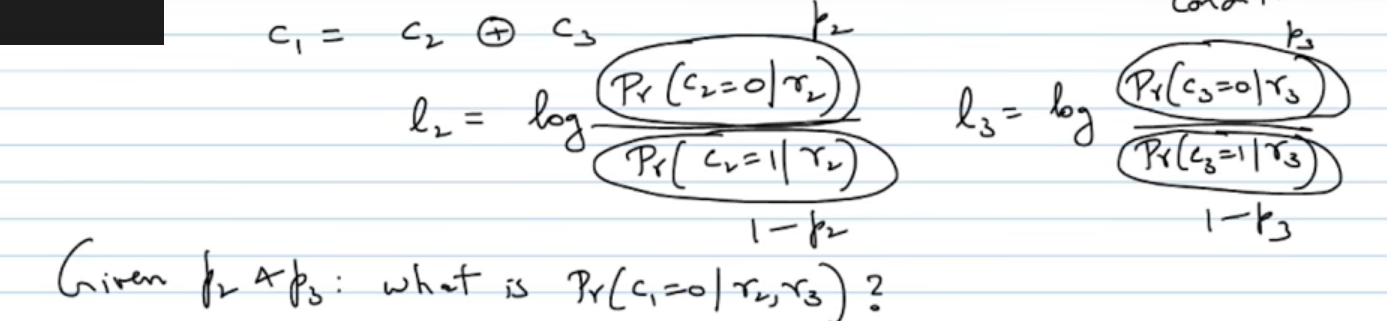 c₁ = c₂ ⊕ c₃
p₂
p₃
l₂ = log Pr(c₂=0|r₂) / Pr(c₂=1|r₂)
l₃ = log Pr(c₃=0|r₃) / Pr(c₃=1|r₃)
1-p₂
1-p₃
Given p₂ & p₃: what is Pr(c₁=0|r₂,r₃)?